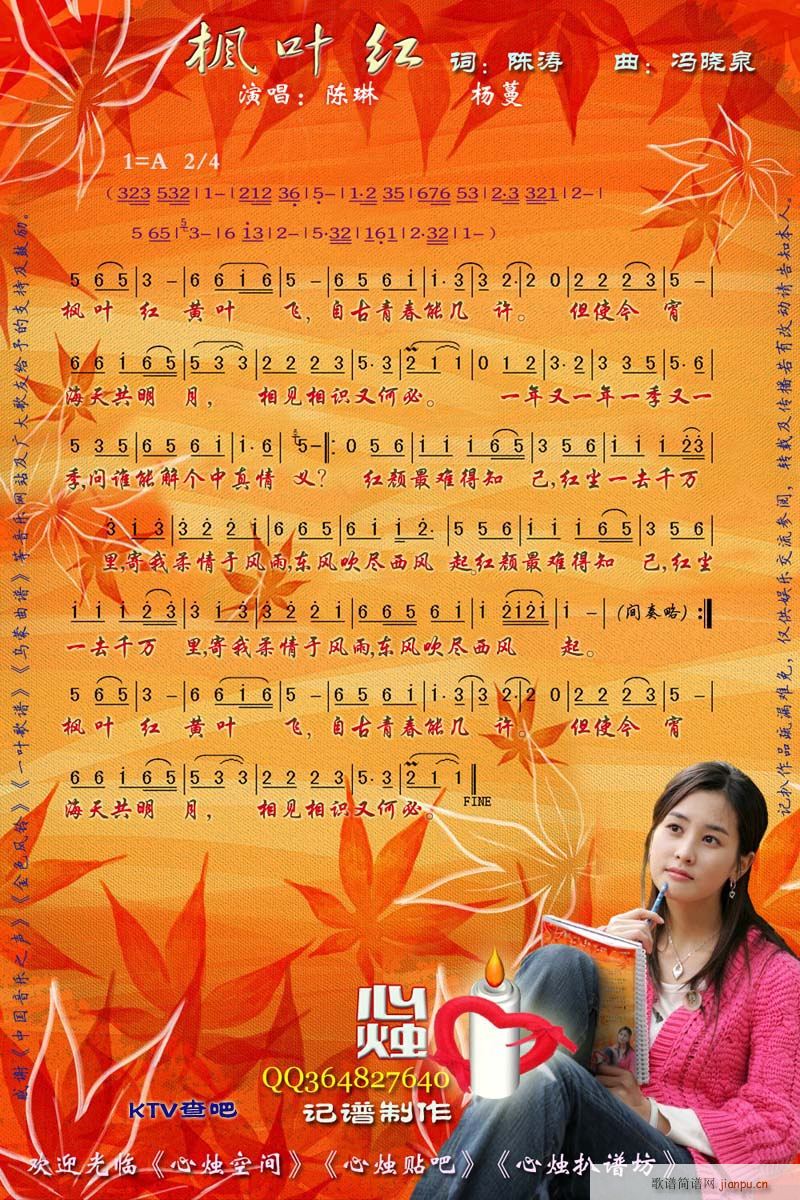 枫叶红 词：陈涛 曲：冯晓泉
演唱：陈琳 杨蔓
1=A 2/4
( 323 532 | 1 - | 212 36 | 5 - | 1·2 35 | 676 53 | 2·3 321 | 2 - |
5 65 | 3 - | 6 i3 | 2 - | 5·32 | 161 | 2·32 | 1 - )
5 6 5 | 3 - | 6 6 i 6 | 5 - | 6 5 6 i | i · 3 | 3 2 · | 2 0 | 2 2 2 3 | 5 - |
枫 叶 红 黄 叶 飞，自古青春能几 许。 但使今 宵
6 6 i 6 5 | 5 3 3 | 2 2 2 3 | 5 · 3 | 2 1 1 | 0 1 2 | 3 · 2 | 3 3 5 | 5 · 6 |
海天共明 月， 相见相识又何必。 一年又一年一季又一
5 3 5 | 6 5 6 i | i · 6 | 5 - ‖: 0 5 6 | i i i 6 5 | 3 5 6 | i i i 2 3 |
季,问谁能解个中真情 义？ 红颜最难得知 己,红尘一去千万
3 i 3 | 3 2 2 i | 6 6 5 6 | i i 2 · | 5 5 6 | i i i 6 5 | 3 5 6 |
里,寄我柔情于风雨,东风吹尽西风 起。红颜最难得知 己,红尘
i i i 2 3 | 3 i 3 | 3 2 2 i | 6 6 5 6 | i 2 i 2 i | i - | (间奏略) :‖
一去千万 里,寄我柔情于风雨,东风吹尽西风 起。
5 6 5 | 3 - | 6 6 i 6 | 5 - | 6 5 6 i | i · 3 | 3 2 · | 2 0 | 2 2 2 3 | 5 - |
枫 叶 红 黄 叶 飞，自古青春能几 许。 但使今 宵
6 6 i 6 5 | 5 3 3 | 2 2 2 3 | 5 · 3 | 2 1 1 ‖
海天共明 月， 相见相识又何必。 FINE
感谢《中国音乐之声》《金色风铃》《一叶歌谱》《乌蒙曲谱》等音乐网站及广大歌友给予的支持及鼓励。
记扒作品疏漏难免，仅供娱乐交流参阅，转载及传播若有改动请告知本人。
心烛
QQ364827640
KTV查吧 记谱制作
欢迎光临《心烛空间》《心烛贴吧》《心烛扒谱坊》
歌谱简谱网 jianpu.cn